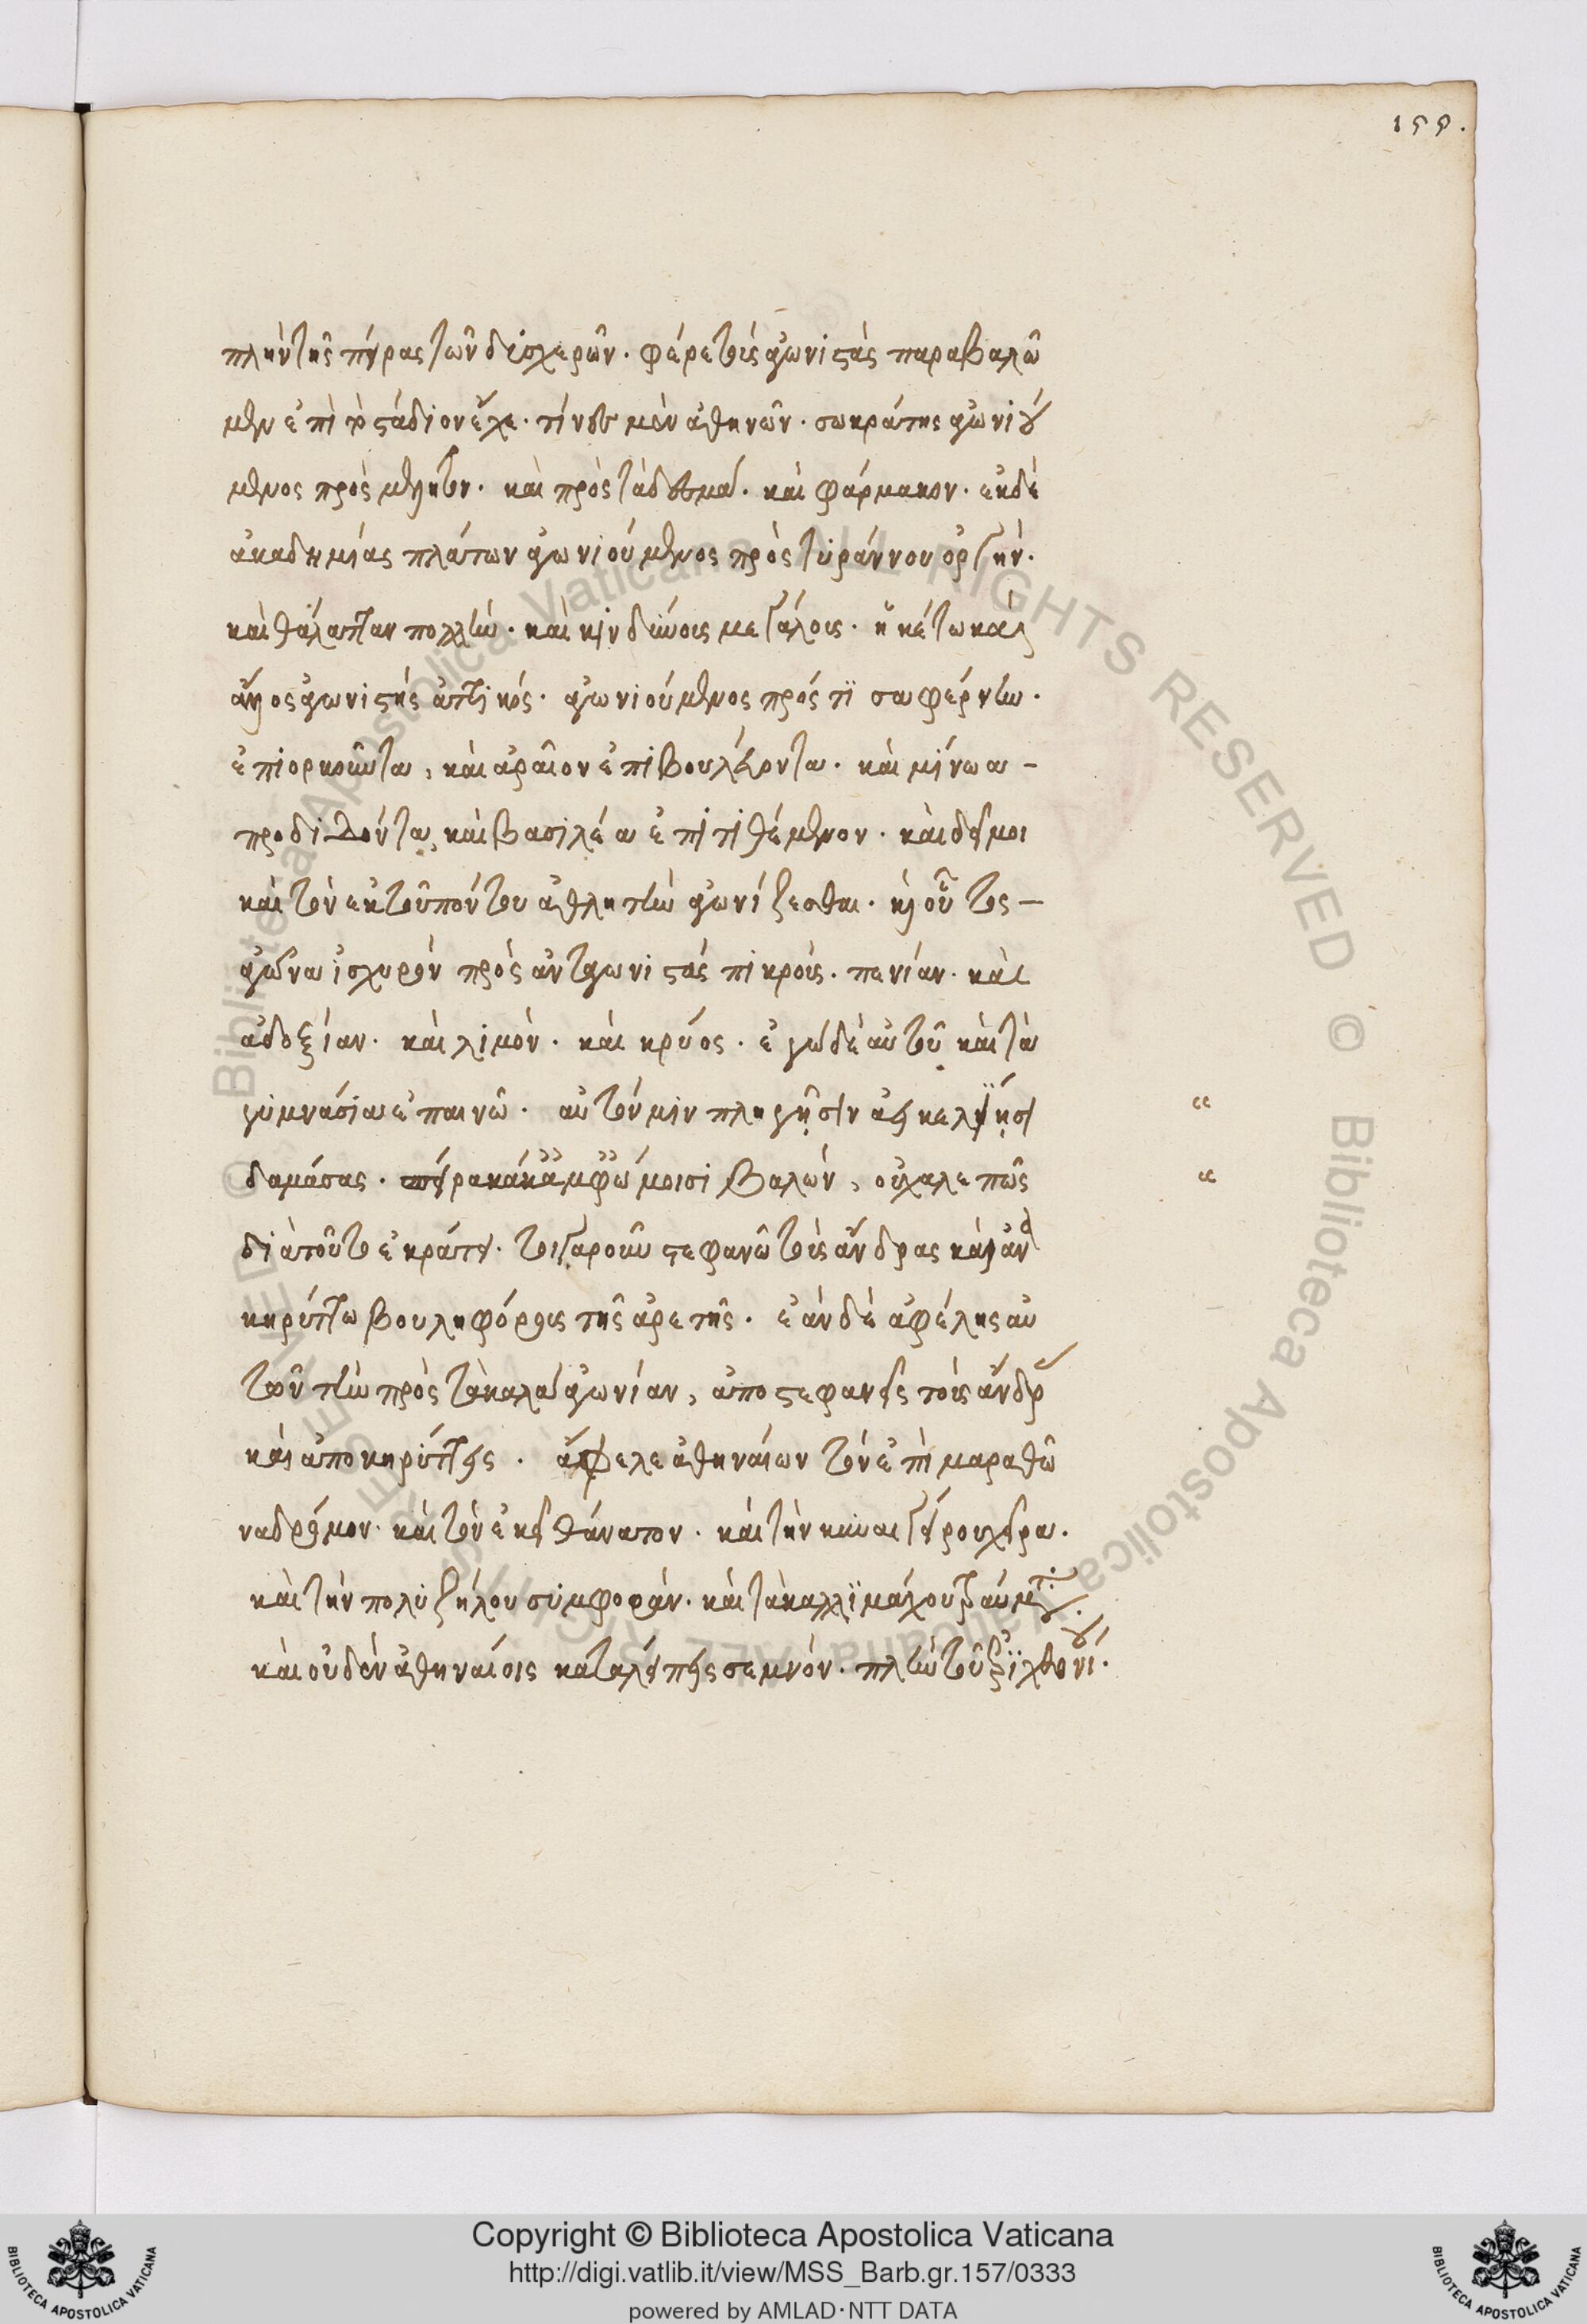 155.
πλὴν τῆς πείρας τῶν δυσχερῶν. φέρε τοὺς ἀγωνιστὰς παραβαλῶ
μεν ἐπὶ τὸ στάδιον ἔχε. τίνα μὲν ἀθηνῶν. σωκράτης ἀγωνιού
μενος πρὸς μέλητον. καὶ πρὸς τὰ δεσμά. καὶ φάρμακον. ἐκ δὲ
ἀκαδημίας πλάτων ἀγωνιούμενος πρὸς τυράννου ὀργήν.
καὶ θάλατταν πολλὴν. καὶ κινδύνοις μεγάλοις. ἡκέτω καὶ
ἄλλος ἀγωνιστὴς ἀττικός. ἀγωνιούμενος πρός τισσαφέρνην.
ἐπιορκοῦντα, καὶ ἀραῖον ἐπιβουλεύοντα. καὶ μένωα -
προδιδόντα, καὶ βασιλέα ἐπιτιθέμενον. καὶ δεῖ μοι
καὶ τὸν ἐκ τοῦ πόντου ἀθλητὴν ἀγωνίζεσθαι. καὶ οὗτος -
ἀγῶνα ἰσχυρὸν πρὸς ἀνταγωνιστὰς πικροὺς. πενίαν. καὶ
ἀδοξίαν. καὶ λιμὸν. καὶ κρύος. ἐγὼ δὲ αὐτοῦ καὶ τὰ
γυμνάσια ἐπαινῶ. αὐτόν μιν πληγῇσιν ἀεικελίῃσι
δαμάσας. σπεῖρα κάκ' ἀμφ' ὤμοισι βαλών, οὐ χαλεπῶς
διὰ τοῦτο ἐκράτει. τοιγαροῦν στεφανῶ τοὺς ἄνδρας καὶ ἀνα
κηρύττω βουληφόρους τῆς ἀρετῆς. ἐὰν δὲ ἀφέλῃς αὐ
τῶν τὴν πρὸς τὰ καλὰ ἀγωνίαν, ἀποστεφανεῖς τοὺς ἄνδρας
καὶ ἀποκηρύττεις. ἄφελε ἀθηναίων τὸν ἐπὶ μαραθῶ
να δρόμον. καὶ τὸν ἐκεῖ θάνατον. καὶ τὴν κυναιγείρου χεῖρα.
καὶ τὴν πολυζήλου συμφορὰν. καὶ τὰ καλλιμάχου τραύματα.
καὶ οὐδὲν ἀθηναίοις καταλείπεις σεμνόν. πλὴν τοῦ ἐριχθονίου.
“
“
Copyright © Biblioteca Apostolica Vaticana
http://digi.vatlib.it/view/MSS_Barb.gr.157/0333
powered by AMLAD·NTT DATA
BIBLIOTECA APOSTOLICA VATICANA
BIBLIOTECA APOSTOLICA VATICANA
© Biblioteca Apostolica Vaticana ALL RIGHTS RESERVED © Biblioteca Apostolica Vaticana ALL RIGHTS RESERVED